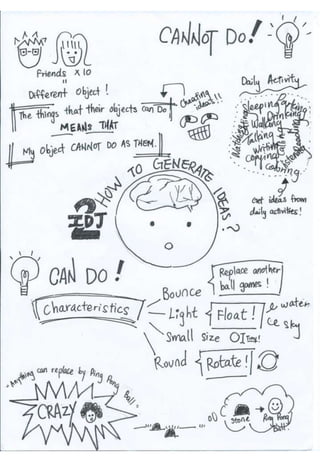 CANNOT DO!
Friends x10
=
Different Object!
The things that their objects can Do
MEANS THAT
My Object CANNOT DO AS THEM.
Cheating idea!!
Daily Activity
Sleeping
Drinking
Walking
Talking
Writing
Copying
Get ideas from
daily activities!
HOW TO GENERATE IDEAS?
2
IDJ
CAN DO!
Characteristics
Bounce
Replace another
ball games!
Light
Float!
water
sky
Small size
Round
Rotate!
"Anything can replace by Ping Pong Ball"
CRAZY
Stone
Ping Pong
Ball